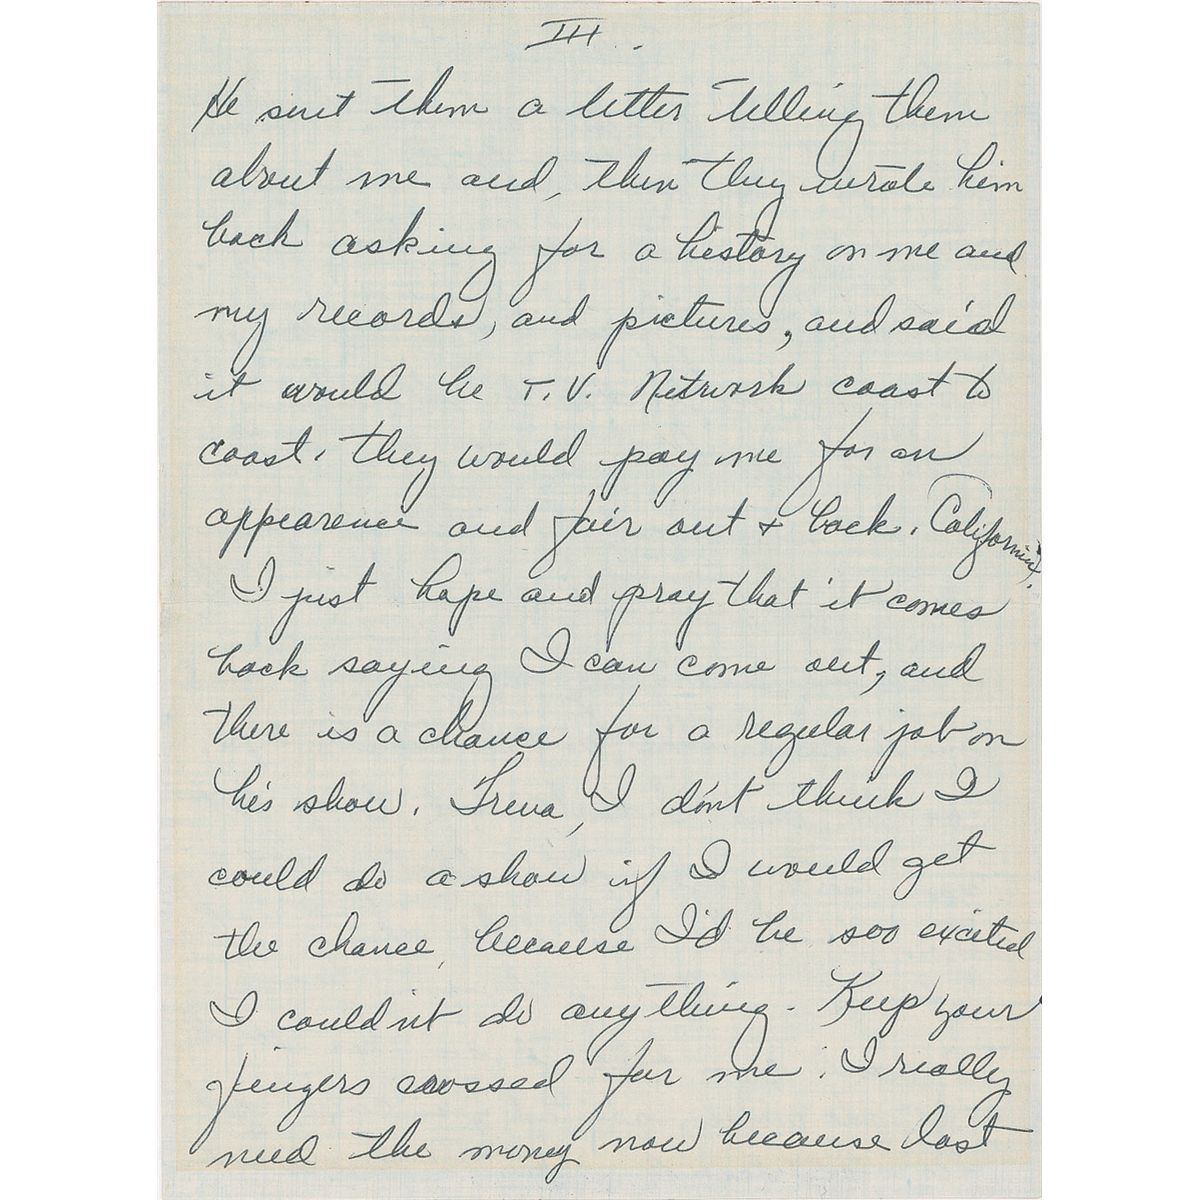 III.
He sent them a letter telling them
about me and, then they wrote him
back asking for a history on me and
my records, and pictures, and said
it would be T.V. Network coast to
coast. they would pay me for an
appearence and fair out & back. California.
I just hope and pray that it comes
back saying I can come out, and
there is a chance for a regular job on
his show. Treva, I don't think I
could do a show if I would get
the chance, because I'd be soo excited
I couldn't do anything. Keep your
fingers crossed for me. I really
need the money now because last